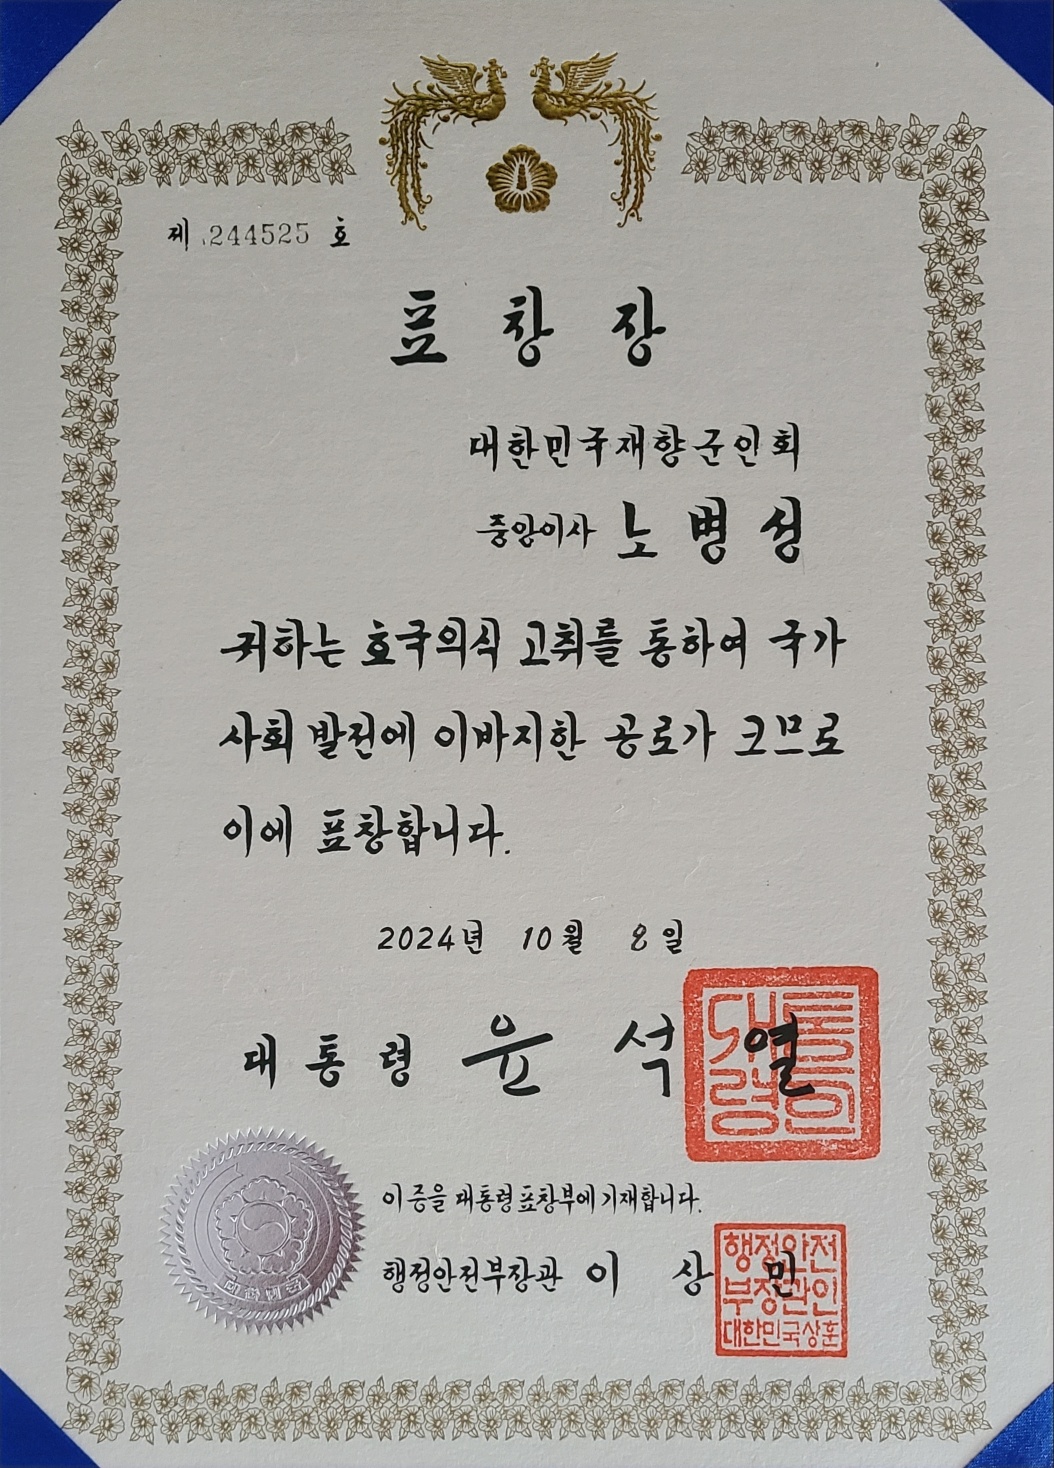 제 244525 호
표 창 장
대한민국재향군인회
중앙이사 노 병 성
귀하는 호국의식 고취를 통하여 국가
사회 발전에 이바지한 공로가 크므로
이에 표창합니다.
2024년 10월 8일
대 통 령 윤 석 열
대통령의인
이 증을 대통령표창부에 기재합니다.
행정안전부장관 이 상 민
행정안전
부장관인
대한민국상훈
대한민국